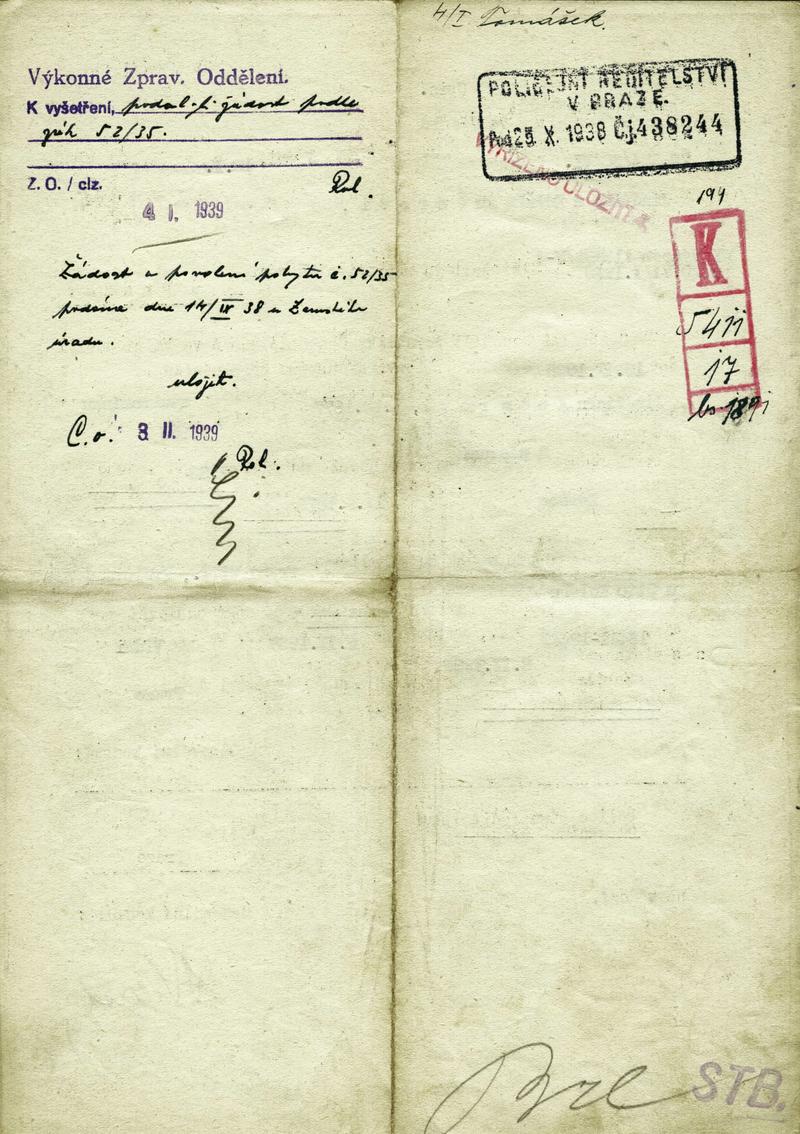 Výkonné Zprav. Oddělení.
K vyšetření, podal-li žádost podle
zák 52/35.
Z. O. / ciz. Pol.
4 I. 1939
Žádost o povolení pobytu č. 52/35
podána dne 14/IX 38 u Zemského
úřadu.
uložit.
C. o. 3 II. 1939
Pol.
4/I Tomášek.
POLICEJNÍ ŘEDITELSTVÍ
V PRAZE.
Pod 25. X. 1938 Čj. 438244
VYŘÍZENO ULOŽIT
194
K
5411
17
STB.